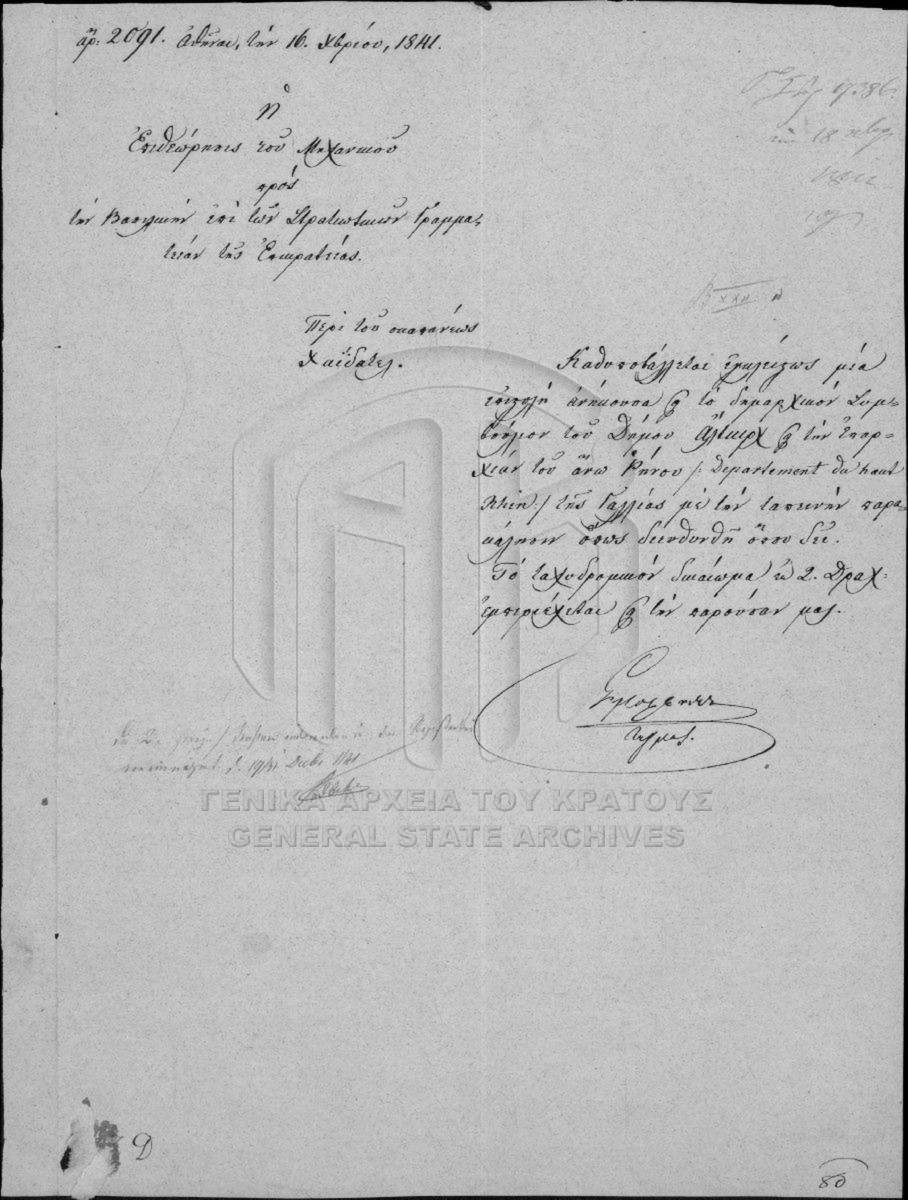 ἀρ: 2091. Ἀθῆναι, τὴν 16. Χβρίου, 1841.
Ἡ
Ἐπιθεώρησις τοῦ Μηχανικοῦ
πρὸς
τὴν Βασιλικὴν ἐπὶ τῶν Στρατιωτικῶν Γραμμα-
τείαν τῆς Ἐπικρατείας.
Περὶ τοῦ σκαπανέως
Χαϊδατελ.
Καθυποβάλλεται ἐγκλείστως μία
ἐπιστολὴ ἀνήκουσα εἰς τὸ δημαρχικὸν Συμ-
βούλιον τοῦ Δήμου Ἄλτκιρχ εἰς τὴν Ἐπαρ-
χίαν τοῦ ἄνω Ῥήνου /: Departement du haut
Rhin :/ τῆς Γαλλίας μὲ τὴν ταπεινὴν παρα-
κάλησιν ὅπως διευθυνθῇ ὅπου δεῖ.
Τὸ ταχυδρομικὸν δικαίωμα ἐκ 2. Δραχ:
ἐμπεριέχεται εἰς τὴν παροῦσάν μας.
18
1841
ΓΕΝΙΚΑ ΑΡΧΕΙΑ ΤΟΥ ΚΡΑΤΟΥΣ
GENERAL STATE ARCHIVES
D
80